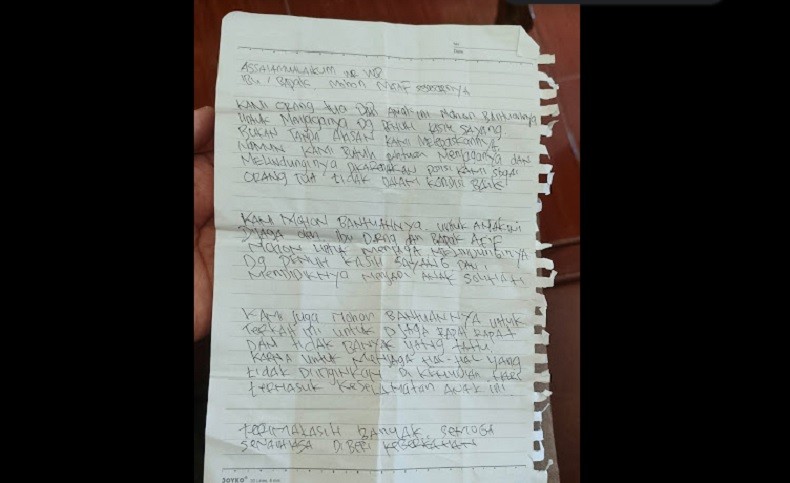 ASSALAMUALAIKUM WR WB
IBU / BAPAK MOHON MAAF sebesarnya
KAMI ORANG TUA DARI ANAK INI MOHON BANTUANNYA
Untuk Menjaganya Dg PENUH KASIH Sayang
BUKAN TANPA ALASAN KAMI
NAMUN KAMI Butuh Menjaganya DAN
Melindunginya DKARENAKAN POSISI KAMI sbgai
ORANG TUA tidak DALAM KONDISI BAIK
KAMI MOHON BANTUANNYA untuk ANAK INI
DIJAGA oleh IBU DAN BAPAK
MOHON UNTUK MENJAGA MELINDUNGINYA
Dg PENUH KASIH SAYANG DAN
MENDIDIKNYA MENJADI ANAK SOLIHAH
KAMI Juga Mohon BANTUANNYA untuk
TERKAIT INI UNTUK DIJAGA RAPAT RAPAT
DAN tidak BANYAK yang TAHU
KARNA UNTUK MENJAGA HAL-HAL yang
tidak DIINGINKAN DI KEMUDIAN HARI
termasuk KESELAMATAN ANAK INI
TERIMAKASIH BANYAK SEMOGA
SENANTIASA DIBERI KEBERKAHAN
JOYKO